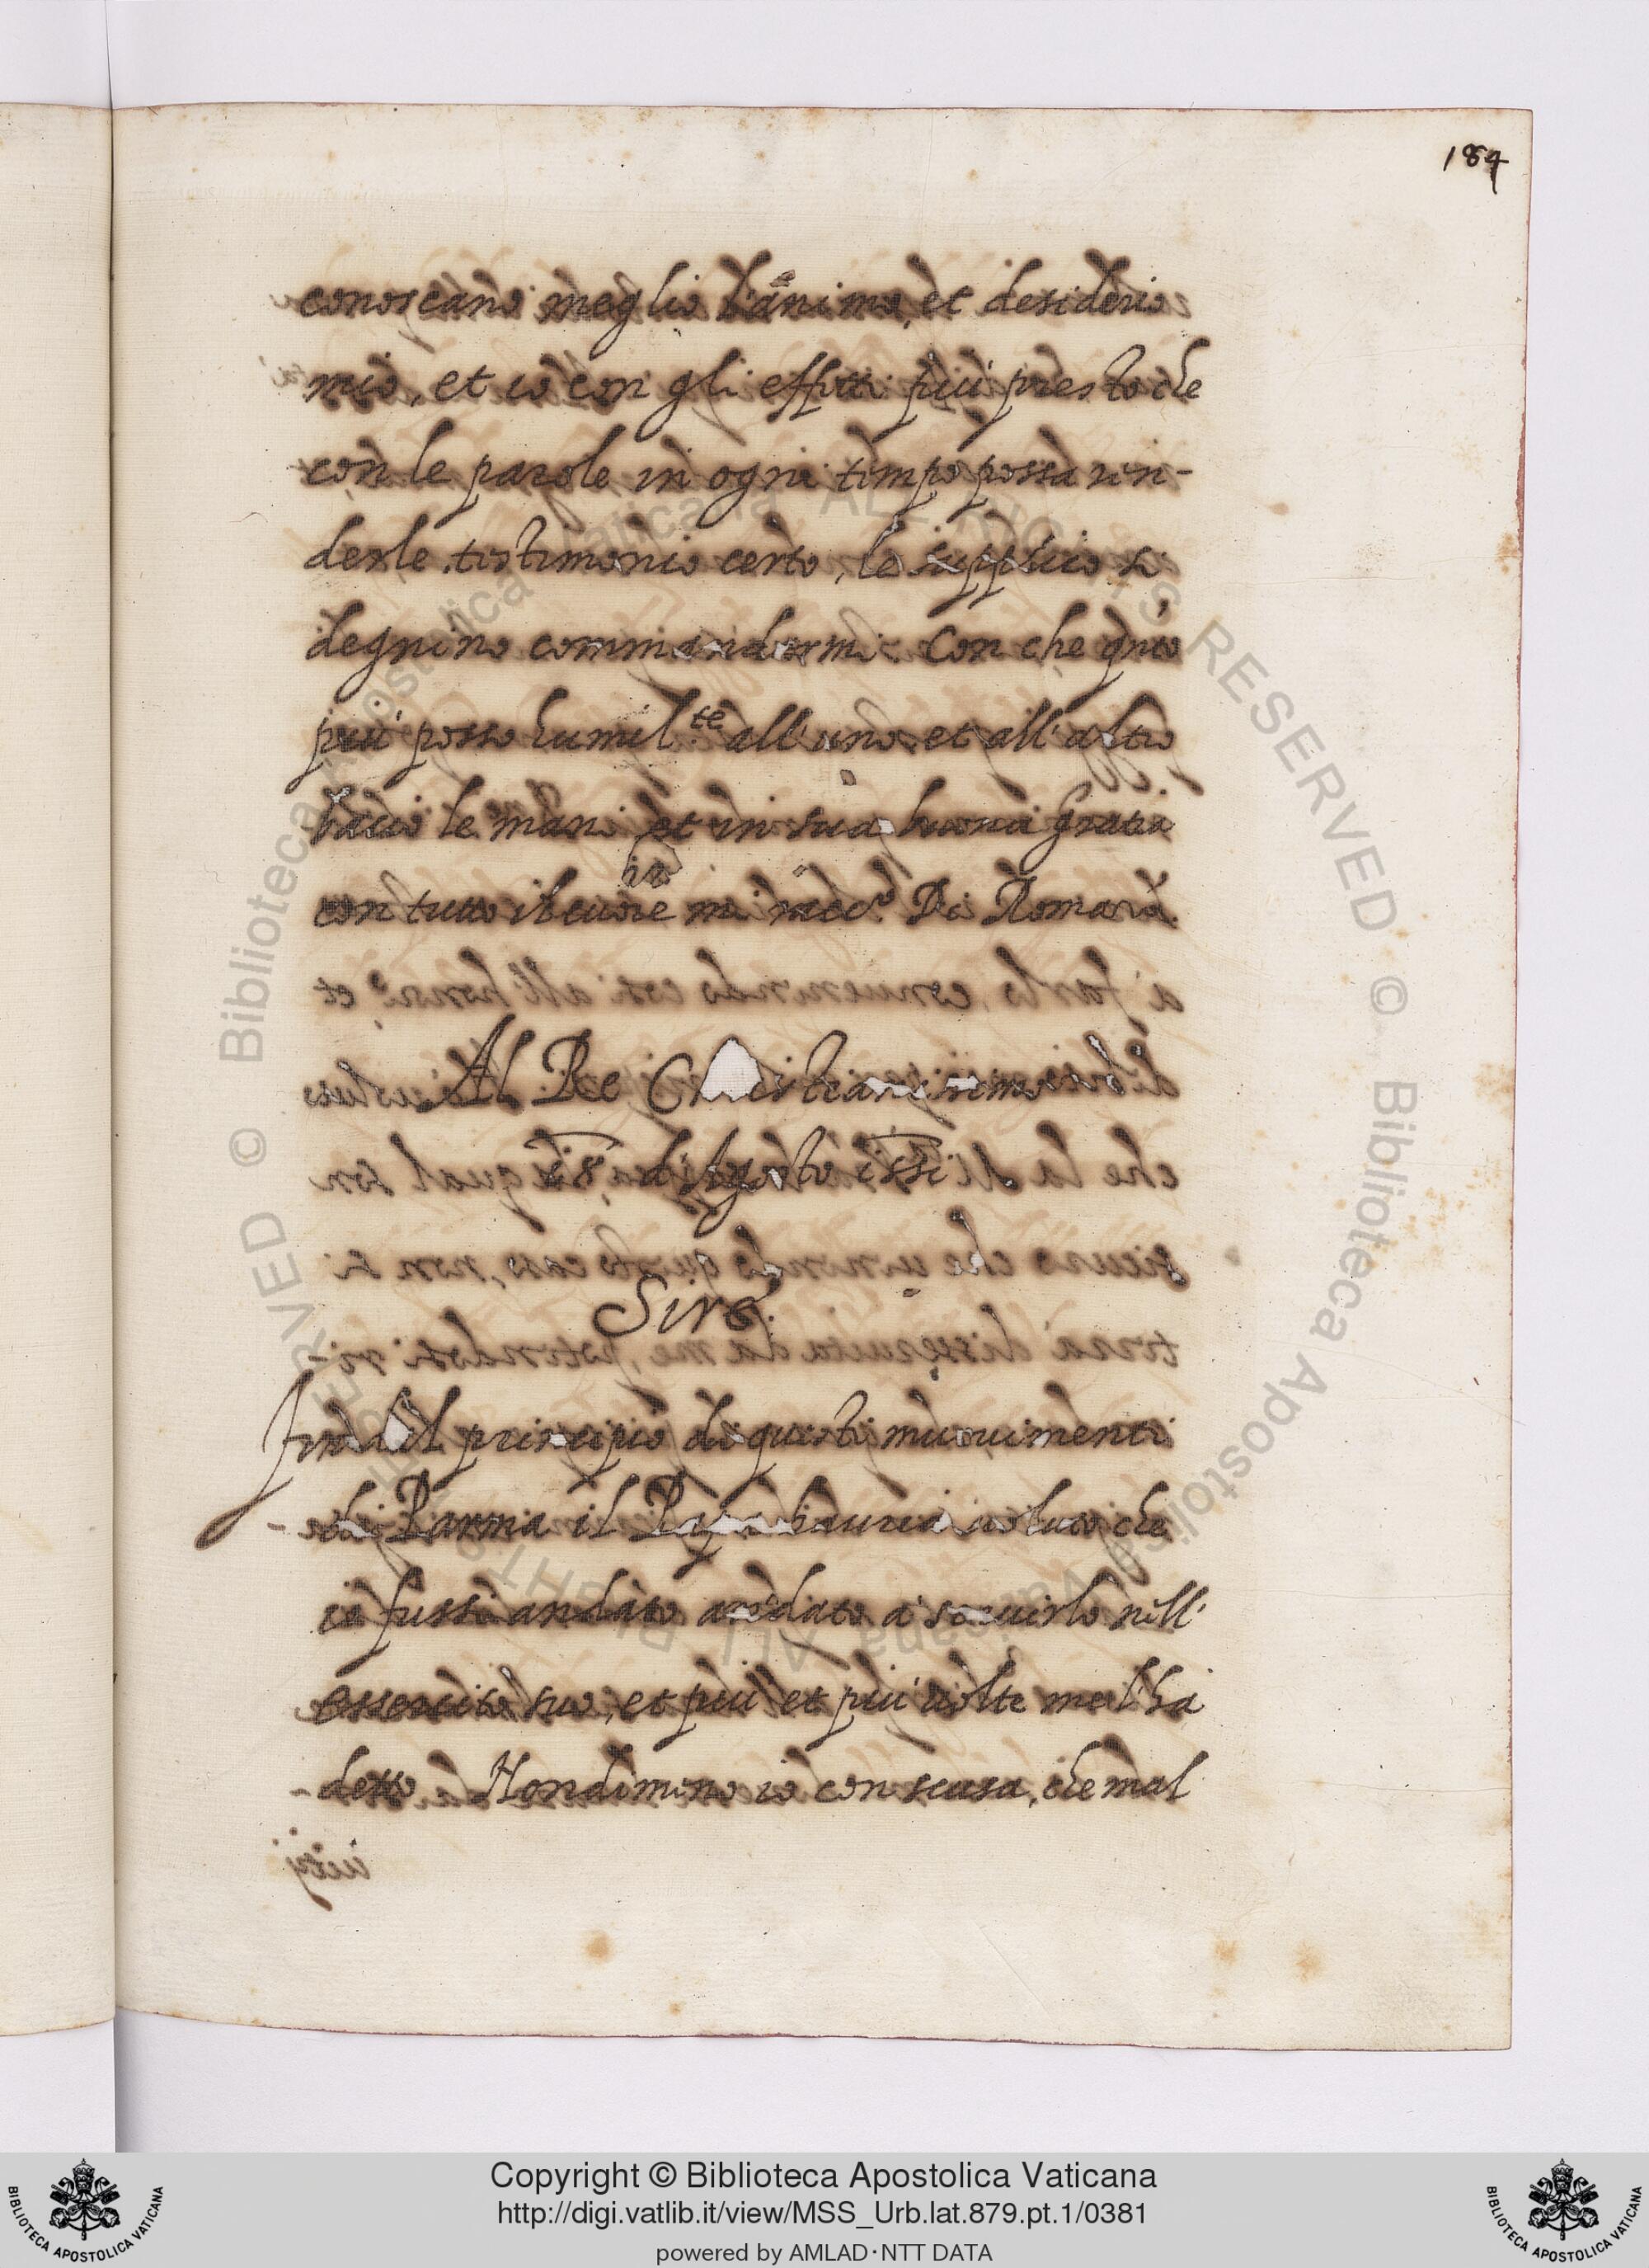 184
conoscano meglio l'animo, et desiderio
mio, et io con gli effetti più presto che
con le parole in ogni tempo possa ren-
derle testimonio certo, le supplico si
degnino commandarmi. Con che q̃nto
più posso humil.te all'uno, et all'altro
bacio le mani et in sua buona gratia
con tutto il cuore mi racc.do Di Roma
Al Re Christianissimo
d'Agosto 1551
Sire.
Fin dal principio di questi muouimenti
di Parma il Papa hauria uoluto che
io fussi andato andato a seruirlo nell'
essercito suo, et più et più uolte me l'ha
detto. Nondimeno io con scusa, che mal
Copyright © Biblioteca Apostolica Vaticana
http://digi.vatlib.it/view/MSS_Urb.lat.879.pt.1/0381
powered by AMLAD·NTT DATA
BIBLIOTECA APOSTOLICA VATICANA
BIBLIOTECA APOSTOLICA VATICANA